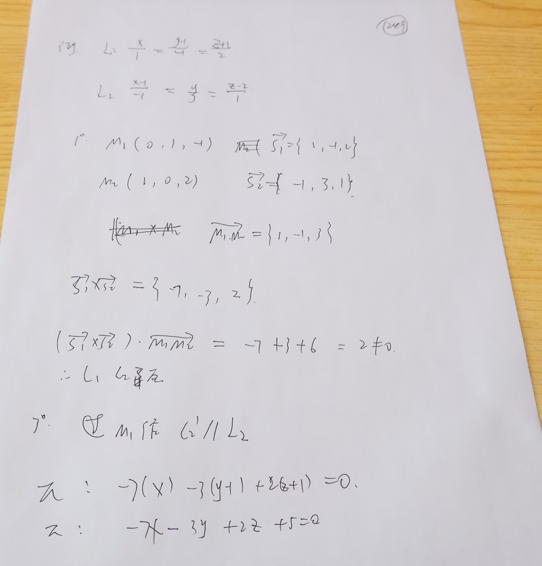 L₁ x/1 = y-1/-1 = z+1/2
L₂ x-1/-1 = y/3 = z-2/1
1° M₁(0,1,-1) S₁={1,-1,2}
M₂(1,0,2) S₂={-1,3,1}
M₁M₂={1,-1,3}
S₁×S₂={-7,-3,2}
(S₁×S₂)·M₁M₂ = -7+3+6 = 2≠0.
∴ L₁ L₂异面
2° 过M₁作 L₂'//L₂
π: -7(x)-3(y+1)+2(z+1)=0.
π: -7x-3y+2z+5=0